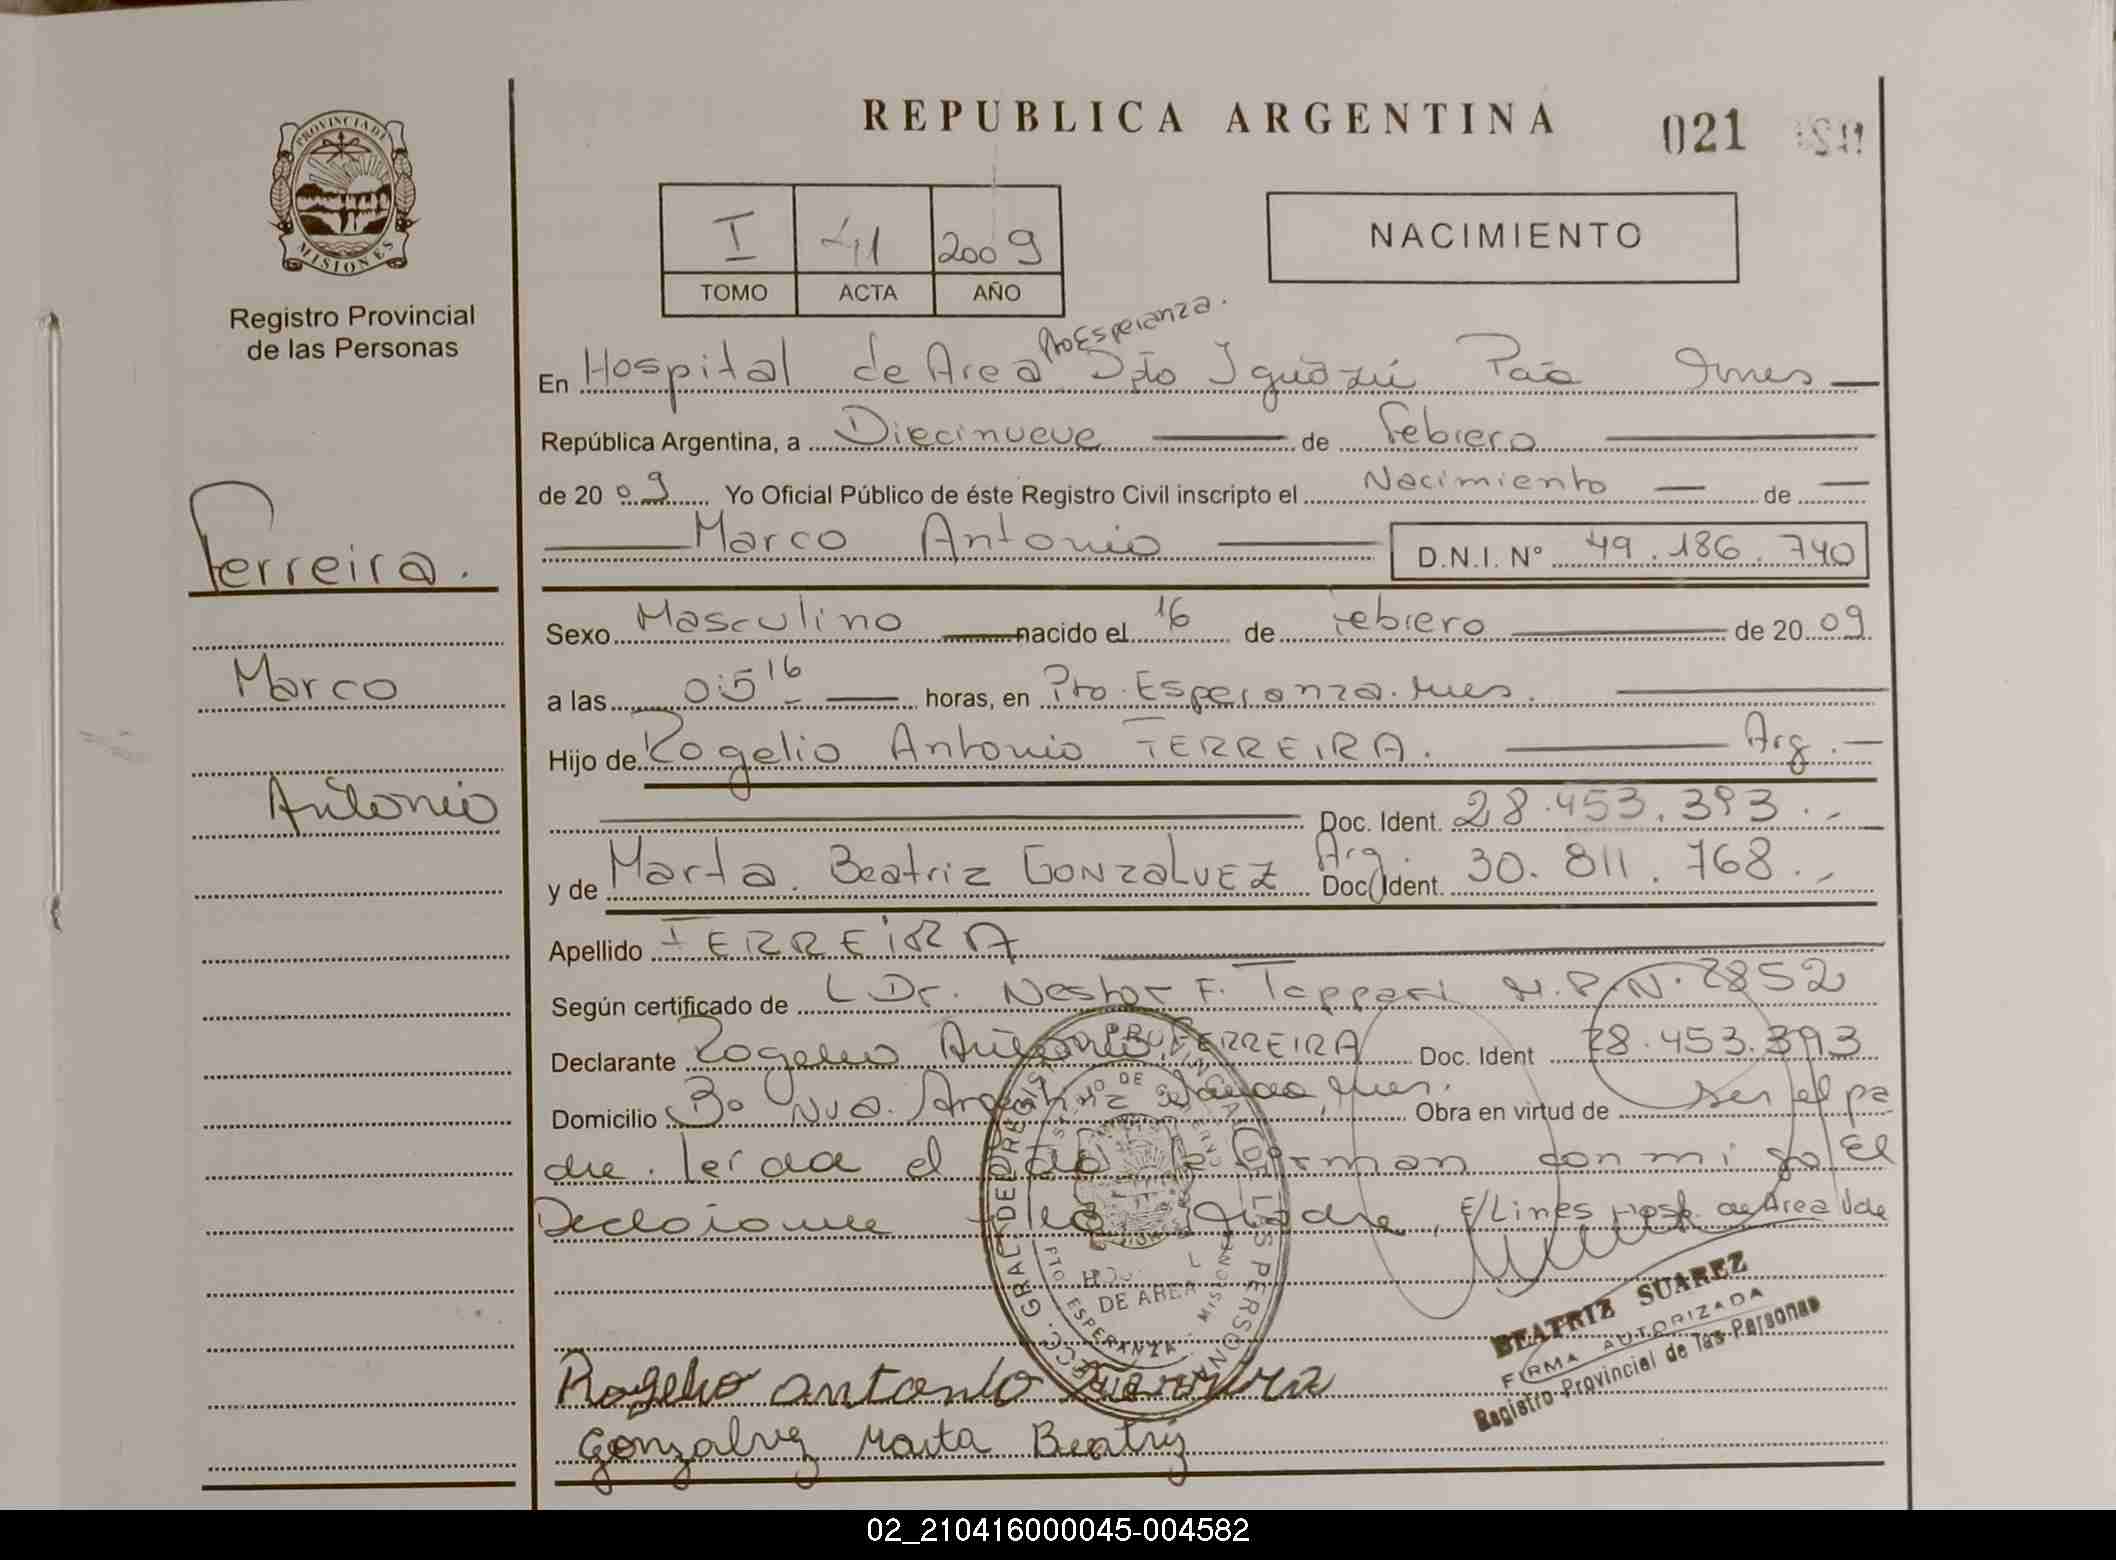 REPUBLICA ARGENTINA
021
PROVINCIA DE
MISIONES
Registro Provincial
de las Personas
I 41 2009
TOMO ACTA AÑO
NACIMIENTO
Pto Esperanza.
En Hospital de Area Dpto Iguazú Pcia Mnes
República Argentina, a Diecinueve de febrero
de 20 09 Yo Oficial Público de éste Registro Civil inscripto el Nacimiento de
Marco Antonio D.N.I. N° 49.186.740
Ferreira.
Marco
Antonio
Sexo Masculino nacido el 16 de febrero de 20 09
a las 05 16 horas, en Pto. Esperanza. Mnes.
Hijo de Rogelio Antonio FERREIRA. Arg.
Doc. Ident. 28.453.393.
y de Marta Beatriz GONZALVEZ Arg. Doc. Ident. 30.811.768.
Apellido FERREIRA
Según certificado de Dr. Nestor F. M.P.N. 2852
Declarante Rogelio Antonio FERREIRA Doc. Ident 28.453.393
Domicilio Bo Nva. Mnes. Obra en virtud de ser el pa
dre. leída el firman conmigo El
Declarante y la Madre, E/Lines Hosp. de Area Vde
DE AREA
PTO ESPERANZA - MISIONES
BEATRIZ SUAREZ
FIRMA AUTORIZADA
Registro Provincial de las Personas
Rogelio antonio Ferreira
Gonzalvez Marta Beatriz
02_210416000045-004582